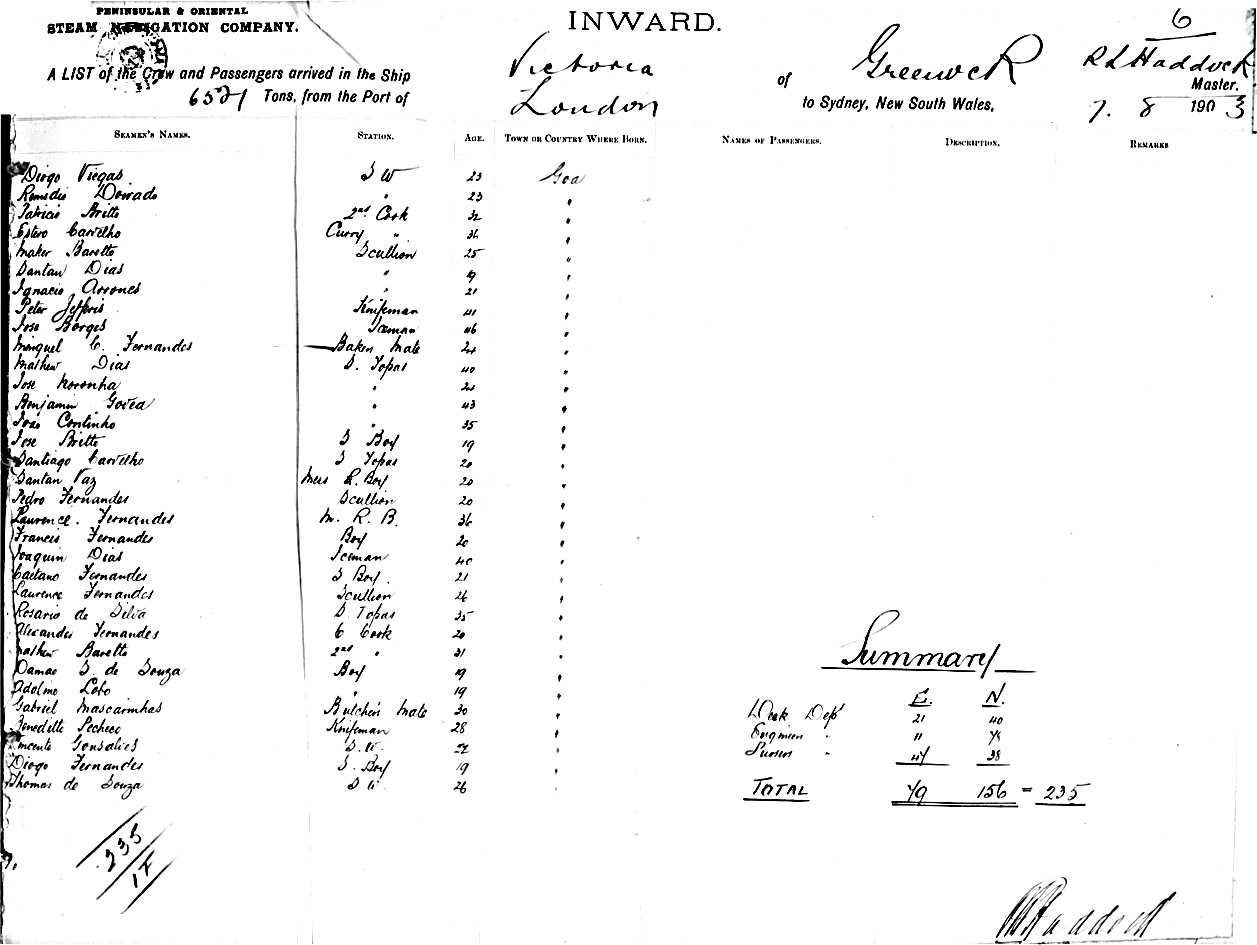 PENINSULAR & ORIENTAL
STEAM NAVIGATION COMPANY.
INWARD.
6
A LIST of the Crew and Passengers arrived in the Ship Victoria of Greenock R L Haddock Master.
6521 Tons, from the Port of London to Sydney, New South Wales, 7. 8 1903
SEAMEN'S NAMES. STATION. AGE. TOWN OR COUNTRY WHERE BORN. NAMES OF PASSENGERS. DESCRIPTION. REMARKS
Diogo Viegas S W 23 Goa
Remedio Dourado " 23 "
Patricio Britto 2nd Cook 32 "
Estero Carvelho Curry " 36 "
Maker Baretto Scullion 25 "
Santan Dias " 19 "
Ignacio Arrones " 21 "
Peter Jefferis Knifeman 41 "
Jose Borges Iceman 46 "
Menguel C. Fernandes Bakers Mate 24 "
Mathew Dias S. Topas 40 "
Jose Noronha " 24 "
Benjamin Govea " 43 "
Joao Continho " 35 "
Jose Britto S Boy 19 "
Santiago Carvelho S Topas 20 "
Santan Vaz Mess R. Boy 20 "
Pedro Fernandes Scullion 20 "
Laurence. Fernandes M. R. B. 36 "
Francis Fernandes Boy 20 "
Joaquin Dias Iceman 40 "
Caetano Fernandes S Boy. 21 "
Laurence Fernandes Scullion 26 "
Rosario de Silva S. Topas 35 "
Alexander Fernandes C Cook 20 "
Mathew Baretto 2nd " 31 "
Damao S. de Souza Boy 19 "
Adolmo Lobo " 19 "
Gabriel Mascarinhas Butchers Mate 30 "
Beneditto Pecheco Knifeman 28 "
Vincente Gonsalves S. W. 27 "
Diogo Fernandes S. Boy 19 "
Thomas de Souza S W 26 "
Summary
E. N.
Deck Dept 21 40
Engineer " 11 78
Pursers " 47 38
TOTAL 79 156 = 235
235
17
R L Haddock